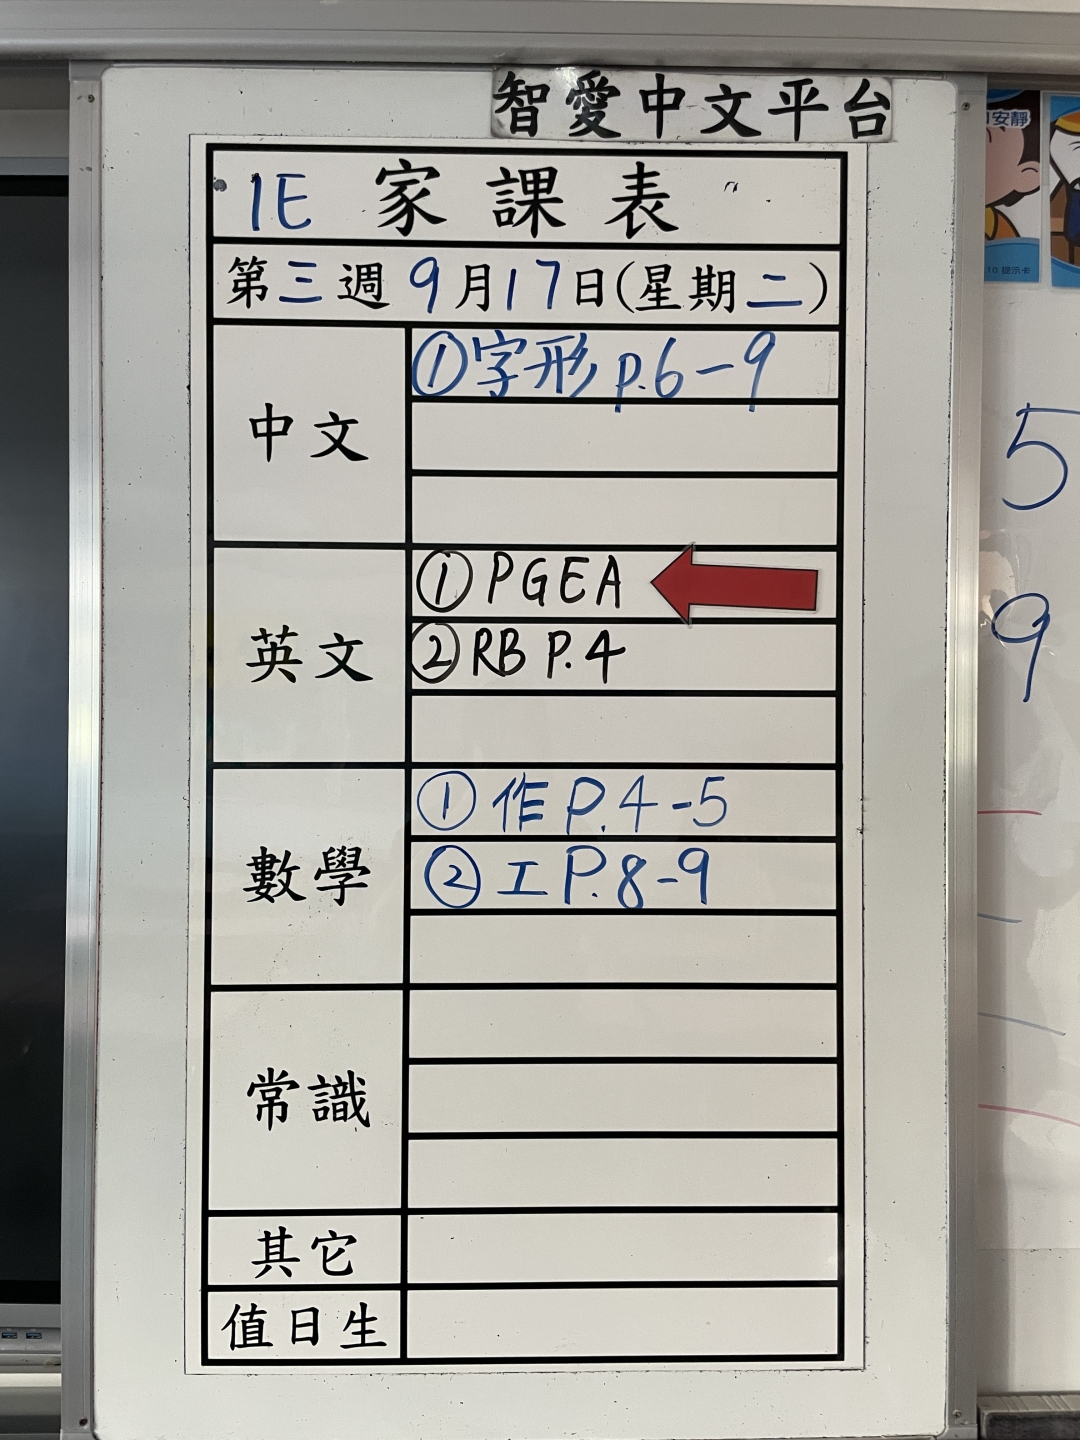 智愛中文平台
1E 家課表
第三週 9月17日(星期二)
中文
①字形 p.6-9
英文
① PGEA
② RB P.4
數學
① 作 P.4-5
② 工 P.8-9
常識
其它
值日生
安靜
10 提示卡
5
9